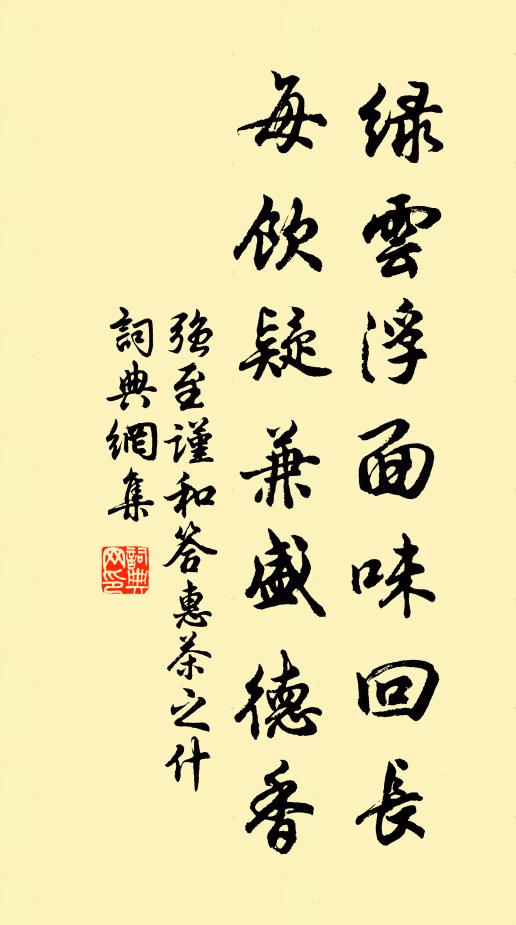 綠雲浮面味回長
每飲疑兼盛德香
強至謹和答惠茶之什
詞典網集
詞典網印